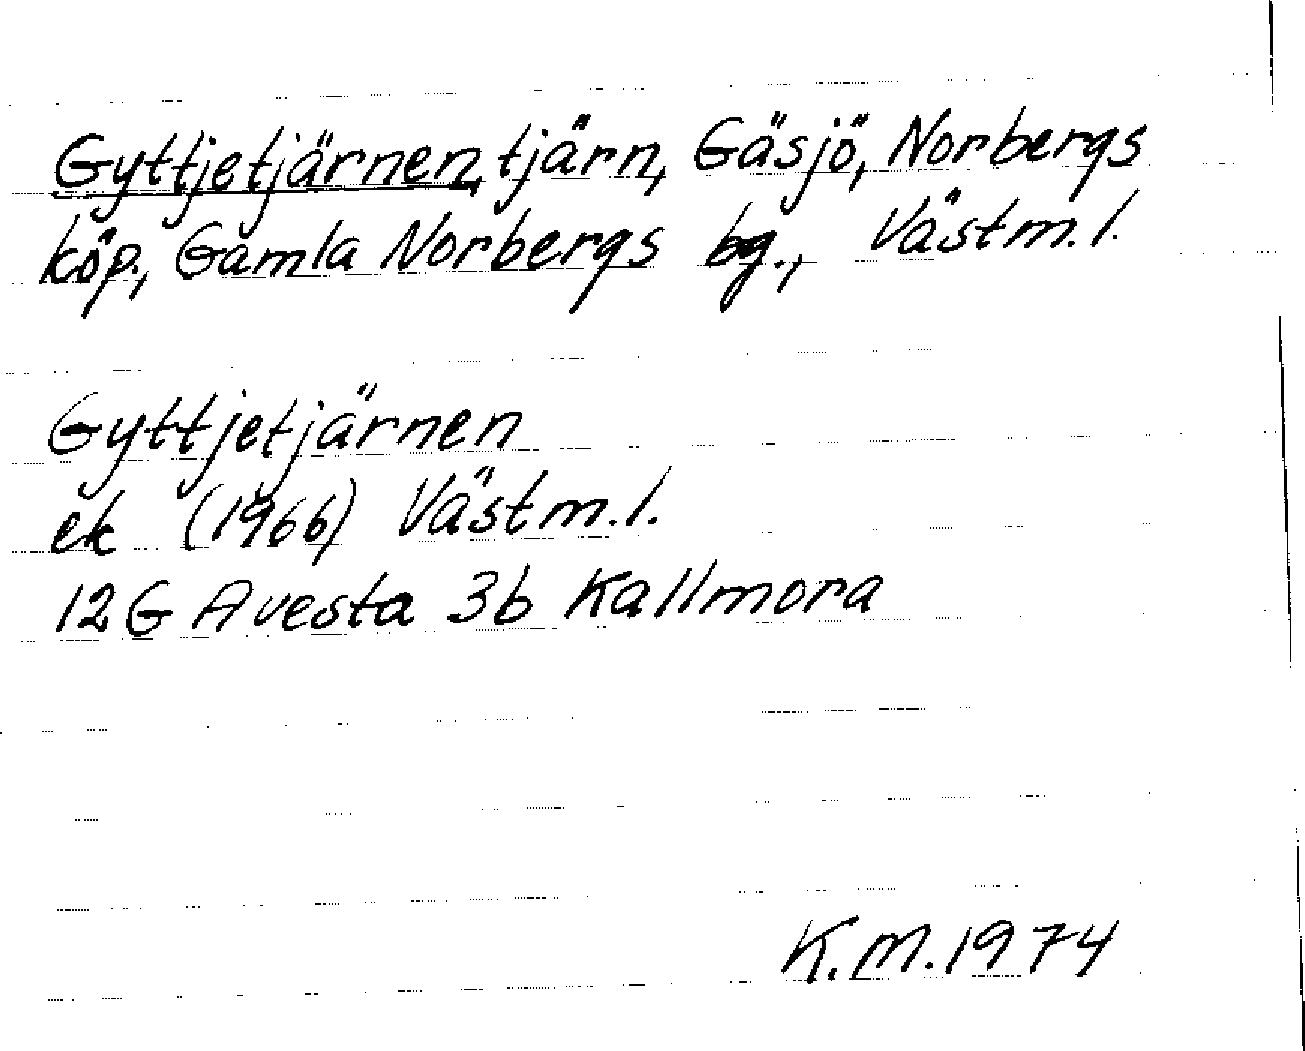 Gyttjetjärnen, tjärn, Gäsjö, Norbergs
köp., Gamla Norbergs bg., Västm.l.
Gyttjetjärnen
ek (1966) Västm.l.
12G Avesta 3b Kallmora
K.M.1974